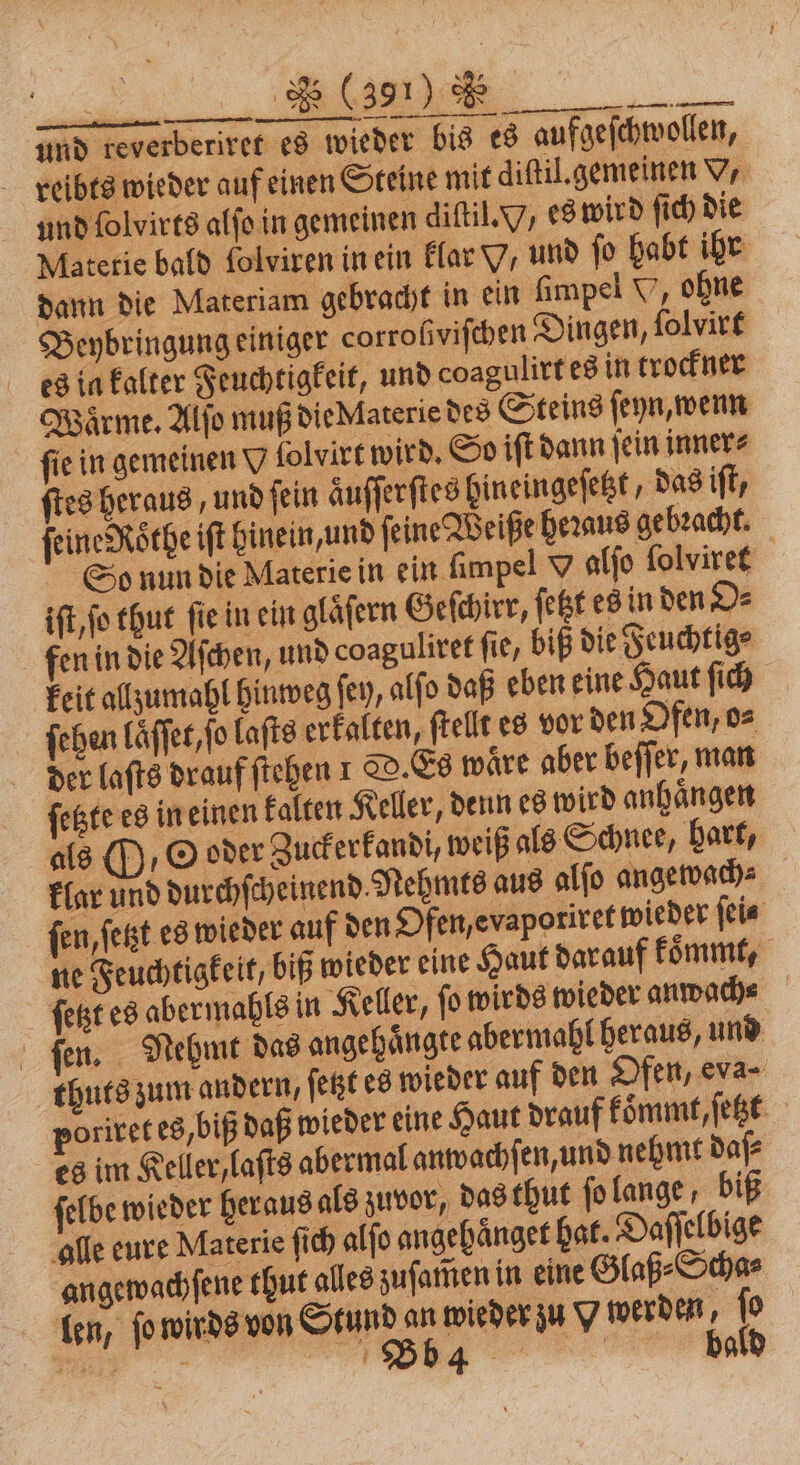 ❧ (391) ❧
und reverberiret es wieder bis es aufgeſchwollen,
reibts wieder auf einen Steine mit diſtil. gemeinen 🜄,
und ſolvirts alſo in gemeinen diſtil. 🜄, es wird ſich die
Materie bald ſolviren in ein klar 🜄, und ſo habt ihr
dann die Materiam gebracht in ein ſimpel 🜄, ohne
Beybringung einiger corroſiviſchen Dingen, ſolvirt
es in kalter Feuchtigkeit, und coagulirt es in trockner
Waͤrme. Alſo muß die Materie des Steins ſeyn, wenn
ſie in gemeinen 🜄 ſolvirt wird. So iſt dann ſein inner⸗
ſtes heraus, und ſein aͤuſſerſtes hineingeſetzt, das iſt,
ſeine Roͤthe iſt hinein, und ſeine Weiße heꝛaus gebꝛacht.
So nun die Materie in ein ſimpel 🜄 alſo ſolviret
iſt, ſo thut ſie in ein glaͤſern Geſchirr, ſetzt es in den O⸗
fen in die Aſchen, und coaguliret ſie, biß die Feuchtig⸗
keit allzumahl hinweg ſey, alſo daß eben eine Haut ſich
ſehen laͤſſet, ſo laſts erkalten, ſtellt es vor den Ofen, o⸗
der laſts drauf ſtehen 1 D. Es waͤre aber beſſer, man
ſetzte es in einen kalten Keller, denn es wird anhaͤngen
als 🜕, ☉ oder Zuckerkandi, weiß als Schnee, hart,
klar und durchſcheinend. Nehmts aus alſo angewach⸗
ſen, ſetzt es wieder auf den Ofen, evaporiret wieder ſei⸗
ne Feuchtigkeit, biß wieder eine Haut darauf koͤmmt,
ſetzt es abermahls in Keller, ſo wirds wieder anwach⸗
ſen. Nehmt das angehaͤngte abermahl heraus, und
thuts zum andern, ſetzt es wieder auf den Ofen, eva-
poriret es, biß daß wieder eine Haut drauf koͤmmt, ſetzt
es im Keller, laſts abermal anwachſen, und nehmt daſ⸗
ſelbe wieder heraus als zuvor, das thut ſo lange, biß
alle eure Materie ſich alſo angehaͤnget hat. Daſſelbige
angewachſene thut alles zuſam̃en in eine Glaß⸗Scha⸗
len, ſo wirds von Stund an wieder zu 🜄 werden, ſo
Bb 4 bald